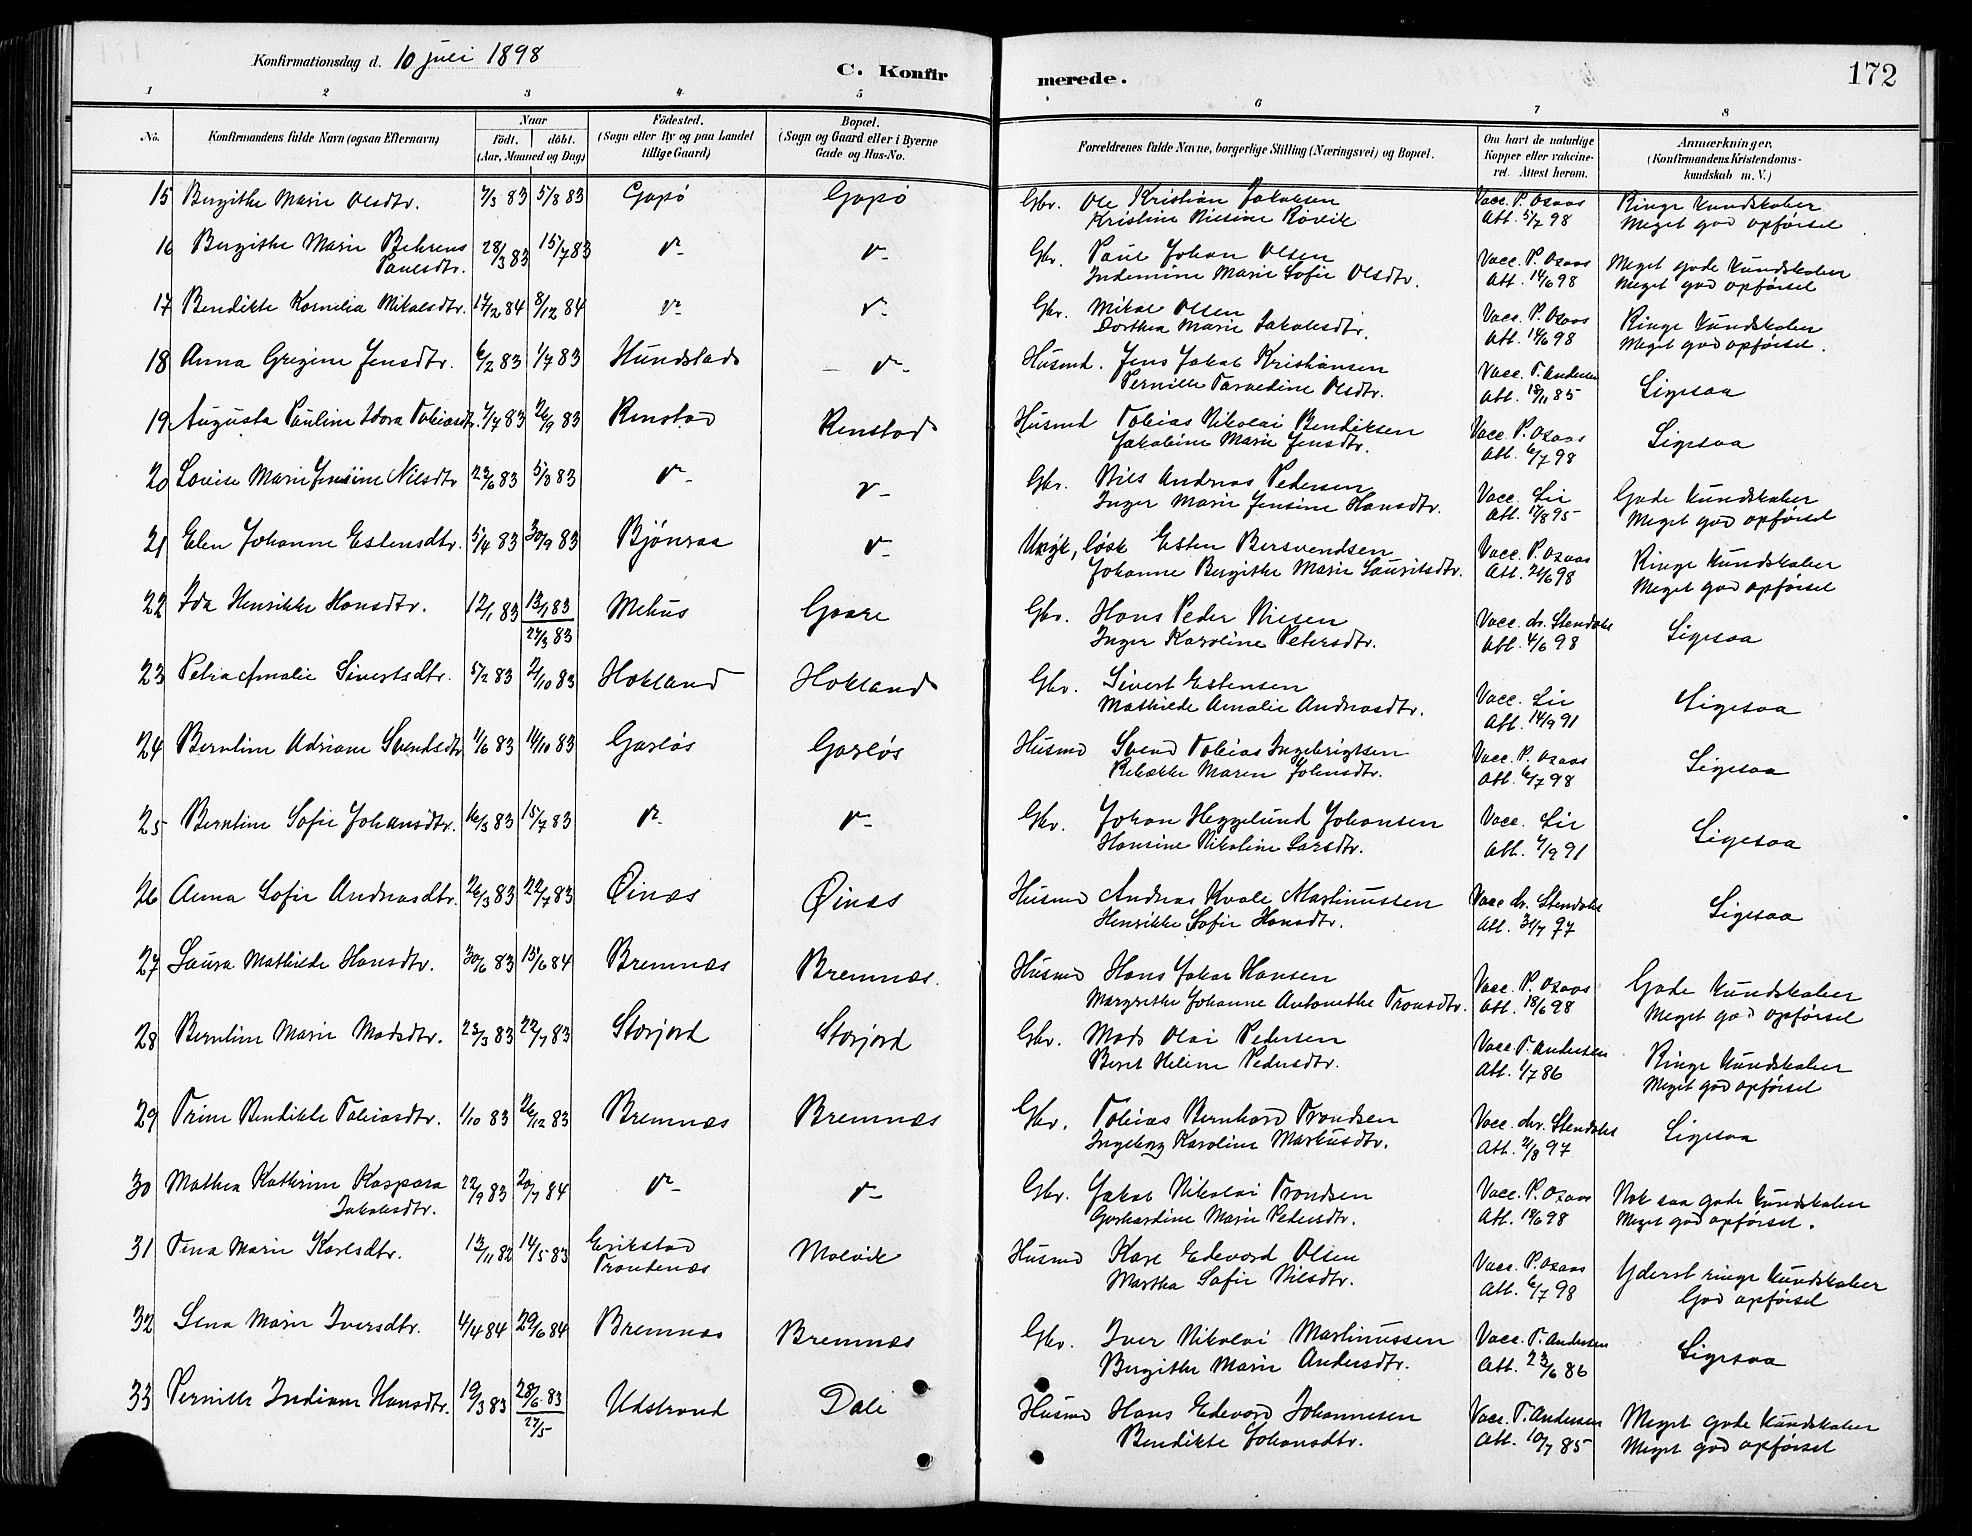 Konfirmationsdag d. 10 juli 1898
C. Konfirmerede.
172
1 2 3 4 5 6 7 8
No. Konfirmandens fulde Navn (ogsaa Efternavn) Naar Födt. döbt. (Aar, Maaned og Dag) Födested. (Sogn eller By og paa Landet tillige Gaard) Bopæl. (Sogn og Gaard eller i Byerne Gade og Hus-No. Forældrenes fulde Navne, borgerlige Stilling (Næringsvei) og Bopæl. Om havt de naturlige Kopper eller vakcineret. Attest herom. Anmærkninger. (Konfirmandens Kristendomskundskab m. V.)
15 Bergithe Marie Olsdtr. 7/3 83 5/8 83 Gapø Gapø Gbr. Ole Kristian Jakobsen Vacc. P. Osaas Ringe kundskaber
Kristine Nilsine Rovik Att. 5/7 98 Meget god opførsel
16 Bergithe Marie Behrens 28/3 83 15/7 83 v- v- Gbr. Paul Johan Olsen Vacc. P. Osaas Meget gode kundskaber
Paulsdtr. Indemine Marie Sofie Olsdtr. Att. 14/6 98 Meget god opførsel
17 Bendikte Kornelia Mikalsdtr. 17/2 84 8/12 84 v- v- Gbr. Mikal Olsen Vacc. P. Osaas Ringe kundskaber
Dorthea Marie Jakobsdtr. Att. 14/6 98 Meget god opførsel.
18 Anna Grezine Jensdtr. 6/2 83 1/7 83 Hundstad v- Husmd. Jens Jakob Kristiansen Vacc. T. Andersen Ligesaa
Pernille Tarvedine Olsdtr. Att. 18/11 85
19 Augusta Pauline Idora Tobiasdt. 7/7 83 26/9 83 Renstad Renstad Husmd Tobias Nikolai Bendiksen Vacc. P. Osaas Ligesaa
Jakobine Marie Jensdtr. Att. 6/7 98
20 Lovise Marie Jensine Nilsdtr 23/6 83 5/8 83 v- v- Gbr. Nils Andreas Pedersen Vacc. Lie Gode kundskaber
Inger Marie Jensine Hansdtr. Att. 17/8 95 Meget god opførsel
21 Elen Johanne Estensdtr. 5/4 83 30/9 83 Bjönraa v- Ungk, løsk Esten Bersvendsen Vacc. P. Osaas Ringe kundskaber
Johanne Bergithe Marie Lauritsdtr. Att. 21/6 98 Meget god opførsel
22 Ida Henrikke Hansdtr. 12/1 83 13/1 83 27/3 83 Mehus Gaare Gbr. Hans Peder Nilsen Vacc. dr. Stendahl Ligesaa
Inger Karoline Petersdtr. Att. 4/6 98
23 Petra Amalie Sivertsdtr. 5/2 83 21/10 83 Hokland Hokland Gbr. Sivert Estensen Vacc. Lie Ligesaa
Mathilde Amalie Andreasdtr. Att. 14/9 91
24 Berntine Adriane Svendsdtr 11/6 83 14/10 83 Garløs Garløs Husmd Svend Tobias Ingebrigtsen Vacc. P. Osaas Ligesaa
Rebække Maren Johnsdtr. Att. 6/7 98
25 Berntine Sofie Johansdtr. 16/3 83 15/7 83 v- v- Gbr. Johan Heggelund Johansen Vacc. Lie Ligesaa
Hansine Nikoline Larsdtr. Att. 7/9 91
26 Anna Sofie Andreasdtr. 26/3 83 22/7 83 Øinæs Øinæs Husmd Andreas Kvale Martinussen Vacc dr. Stendahl Ligesaa
Henrikke Sofie Hansdtr. Att. 31/7 97
27 Laura Mathilde Hansdtr. 30/6 83 15/6 84 Bremnæs Bremnæs. Husmd Hans Jakob Hansen Vacc. P. Osaas Gode kundskaber
Margrethe Johanne Antonethe Tronsdtr. Att. 18/6 98 Meget god opførsel
28 Berntine Marie Madsdtr. 23/3 83 22/7 83 Storjord Storjord Gbr. Mads Olai Pedersen Vacc T. Andersen Ringe kundskaber
Beret Heline Pedersdtr. Att. 1/7 86 Meget god opførsel
29 Trine Bendikte Tobiasdtr. 1/10 83 26/12 83 Bremnæs Bremnæs Gbr. Tobias Bernhard Trondsen Vacc. dr. Stendahl Ligesaa
Ingeborg Karoline Markusdtr. Att. 21/8 97
30 Mathea Kathrine Kaspara 22/9 83 20/7 84 v- v- Gbr. Jakob Nikolai Trondsen Vacc. P. Osaas Nok saa gode kundskaber
Jakobsdtr. Gerhardine Marie Pedersdtr. Att. 18/6 98 Meget god opførsel.
31 Tina Marie Karlsdtr. 13/11 82 14/5 83 Erikstad Molvik Husmd Karl Edevard Olsen Vacc. P. Osaas Yderst ringe kundskaber
Trondenæs Martha Sofie Nilsdtr. Att. 6/7 98 God opførsel
32 Lina Marie Iversdtr. 4/4 84 29/6 84 Bremnæs Bremnæs Gbr. Iver Nikolai Martinussen Vacc. T. Andersen Ligesaa
Bergithe Marie Andersdtr. Att. 23/6 86
33 Pernille Indiane Hansdtr. 19/3 83 28/6 83 27/5 Udstrand Dale Husmd Hans Edevard Johannesen Vacc. T. Andersen Meget gode kundskaber
Bendikte Johansdtr. Att. 10/7 85 Meget god opførsel